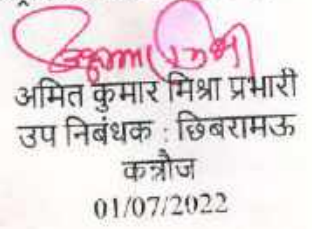 अमित कुमार मिश्रा प्रभारी
उप निबंधक : छिबरामऊ
कन्नौज
01/07/2022